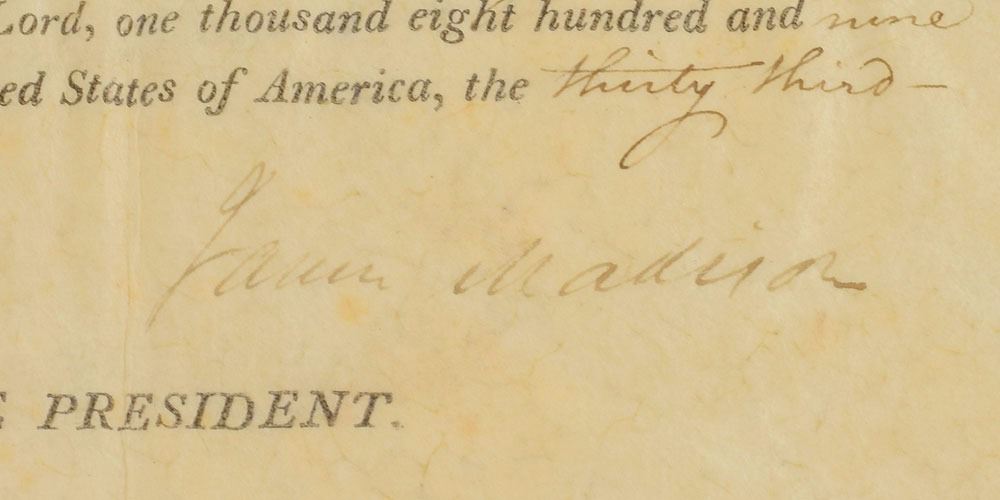 Lord, one thousand eight hundred and nine
ed States of America, the thirty third—
James Madison
PRESIDENT.